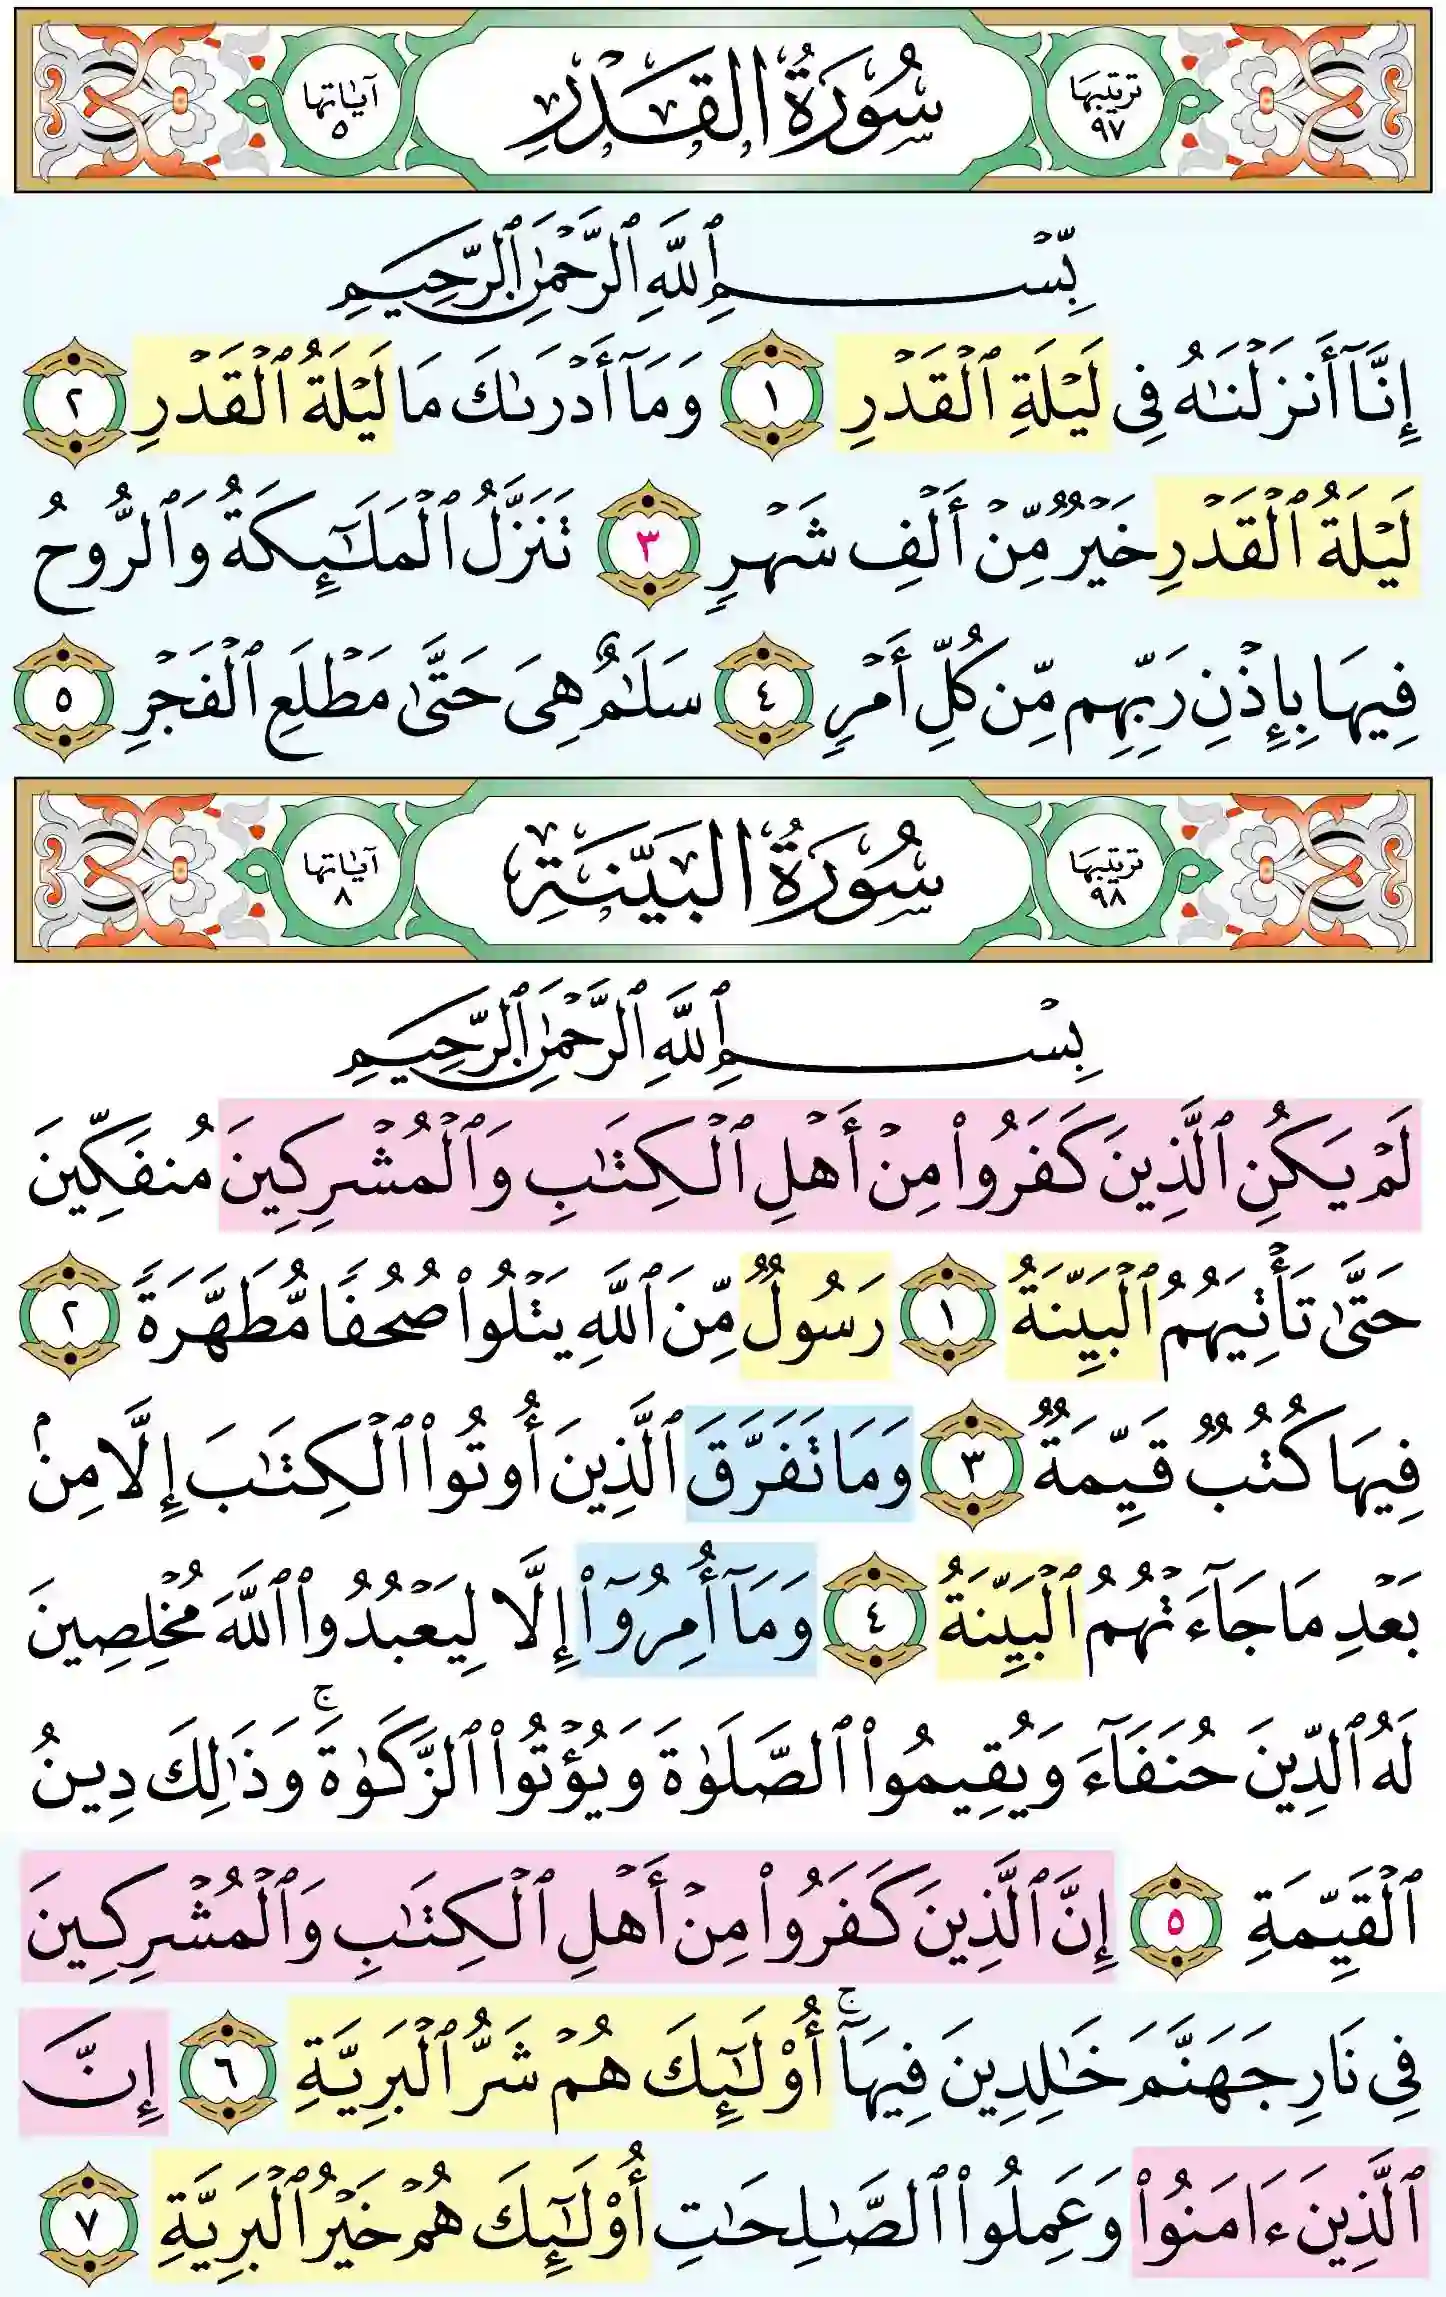 ترتيبها ٩٧ سُورَةُ القَدْرِ آياتها ٥
بِّسْمِ ٱللَّهِ ٱلرَّحْمَٰنِ ٱلرَّحِيمِ
إِنَّآ أَنزَلْنَٰهُ فِى لَيْلَةِ ٱلْقَدْرِ ١ وَمَآ أَدْرَىٰكَ مَا لَيْلَةُ ٱلْقَدْرِ ٢
لَيْلَةُ ٱلْقَدْرِ خَيْرٌ مِّنْ أَلْفِ شَهْرٍ ٣ تَنَزَّلُ ٱلْمَلَٰٓئِكَةُ وَٱلرُّوحُ
فِيهَا بِإِذْنِ رَبِّهِم مِّن كُلِّ أَمْرٍ ٤ سَلَٰمٌ هِىَ حَتَّىٰ مَطْلَعِ ٱلْفَجْرِ ٥
ترتيبها ٩٨ سُورَةُ البَيِّنَةِ آياتها ٨
بِسْمِ ٱللَّهِ ٱلرَّحْمَٰنِ ٱلرَّحِيمِ
لَمْ يَكُنِ ٱلَّذِينَ كَفَرُوا۟ مِنْ أَهْلِ ٱلْكِتَٰبِ وَٱلْمُشْرِكِينَ مُنفَكِّينَ
حَتَّىٰ تَأْتِيَهُمُ ٱلْبَيِّنَةُ ١ رَسُولٌ مِّنَ ٱللَّهِ يَتْلُوا۟ صُحُفًا مُّطَهَّرَةً ٢
فِيهَا كُتُبٌ قَيِّمَةٌ ٣ وَمَا تَفَرَّقَ ٱلَّذِينَ أُوتُوا۟ ٱلْكِتَٰبَ إِلَّا مِنۢ
بَعْدِ مَا جَآءَتْهُمُ ٱلْبَيِّنَةُ ٤ وَمَآ أُمِرُوٓا۟ إِلَّا لِيَعْبُدُوا۟ ٱللَّهَ مُخْلِصِينَ
لَهُ ٱلدِّينَ حُنَفَآءَ وَيُقِيمُوا۟ ٱلصَّلَوٰةَ وَيُؤْتُوا۟ ٱلزَّكَوٰةَ ۚ وَذَٰلِكَ دِينُ
ٱلْقَيِّمَةِ ٥ إِنَّ ٱلَّذِينَ كَفَرُوا۟ مِنْ أَهْلِ ٱلْكِتَٰبِ وَٱلْمُشْرِكِينَ
فِى نَارِ جَهَنَّمَ خَٰلِدِينَ فِيهَآ ۚ أُو۟لَٰٓئِكَ هُمْ شَرُّ ٱلْبَرِيَّةِ ٦ إِنَّ
ٱلَّذِينَ ءَامَنُوا۟ وَعَمِلُوا۟ ٱلصَّٰلِحَٰتِ أُو۟لَٰٓئِكَ هُمْ خَيْرُ ٱلْبَرِيَّةِ ٧